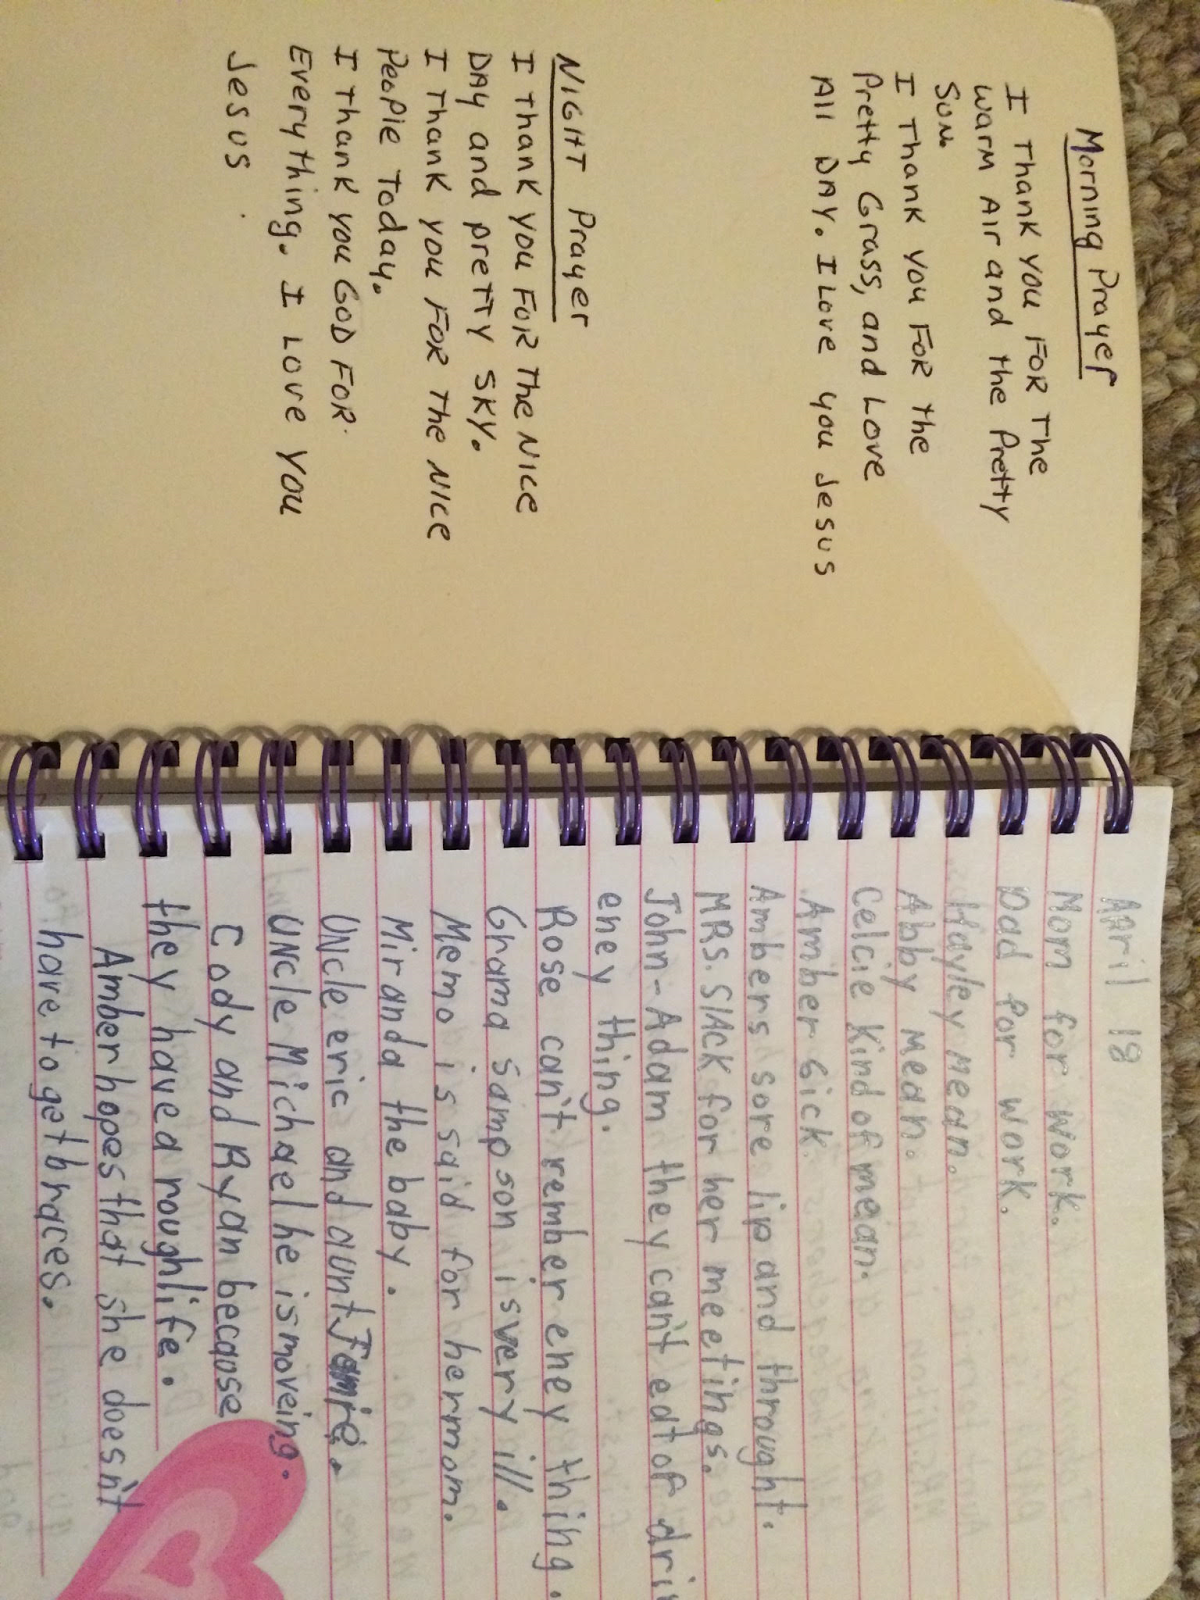 Morning Prayer
I Thank you FOR The
warm Air and the Pretty
Sun.
I Thank you FOR the
Pretty Grass, and Love
All DAY. I Love you Jesus
NIGHT Prayer
I Thank you FOR The NICE
DAY and pretty SKY.
I Thank you FOR The NICE
People Today.
I Thank you GOD FOR
Everything. I Love you
Jesus
April 18
Mom for work.
Dad for work.
Hayley mean.
Abby mean.
Celcie Kind of mean.
Amber Sick
Ambers sore lip and throught.
MRS. SlACK for her meetings.
John-Adam they can't eat of dri
eney thing.
Rose can't rember eney thing.
Grama Sampson is very ill.
Memo is said for her mom.
Miranda the baby.
UNcle eric and aunt
UNcle Michael he is moveing.
Cody and Ryan becaose
they have a rough life.
Amber hopes that she doesn't
have to get braces.